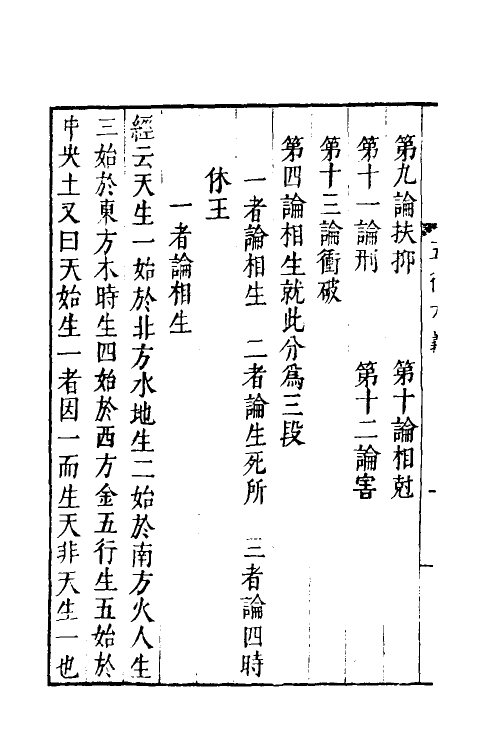 第九論扶抑　第十論相尅
第十一論刑　第十二論害
第十三論衝破
第四論相生就此分爲三段
一者論相生　二者論生死所　三者論四時
休王
一者論相生
經云天生一始於北方水地生二始於南方火人生
三始於東方木時生四始於西方金五行生五始於
中央土又曰天始生一者因一而生天非天生一也